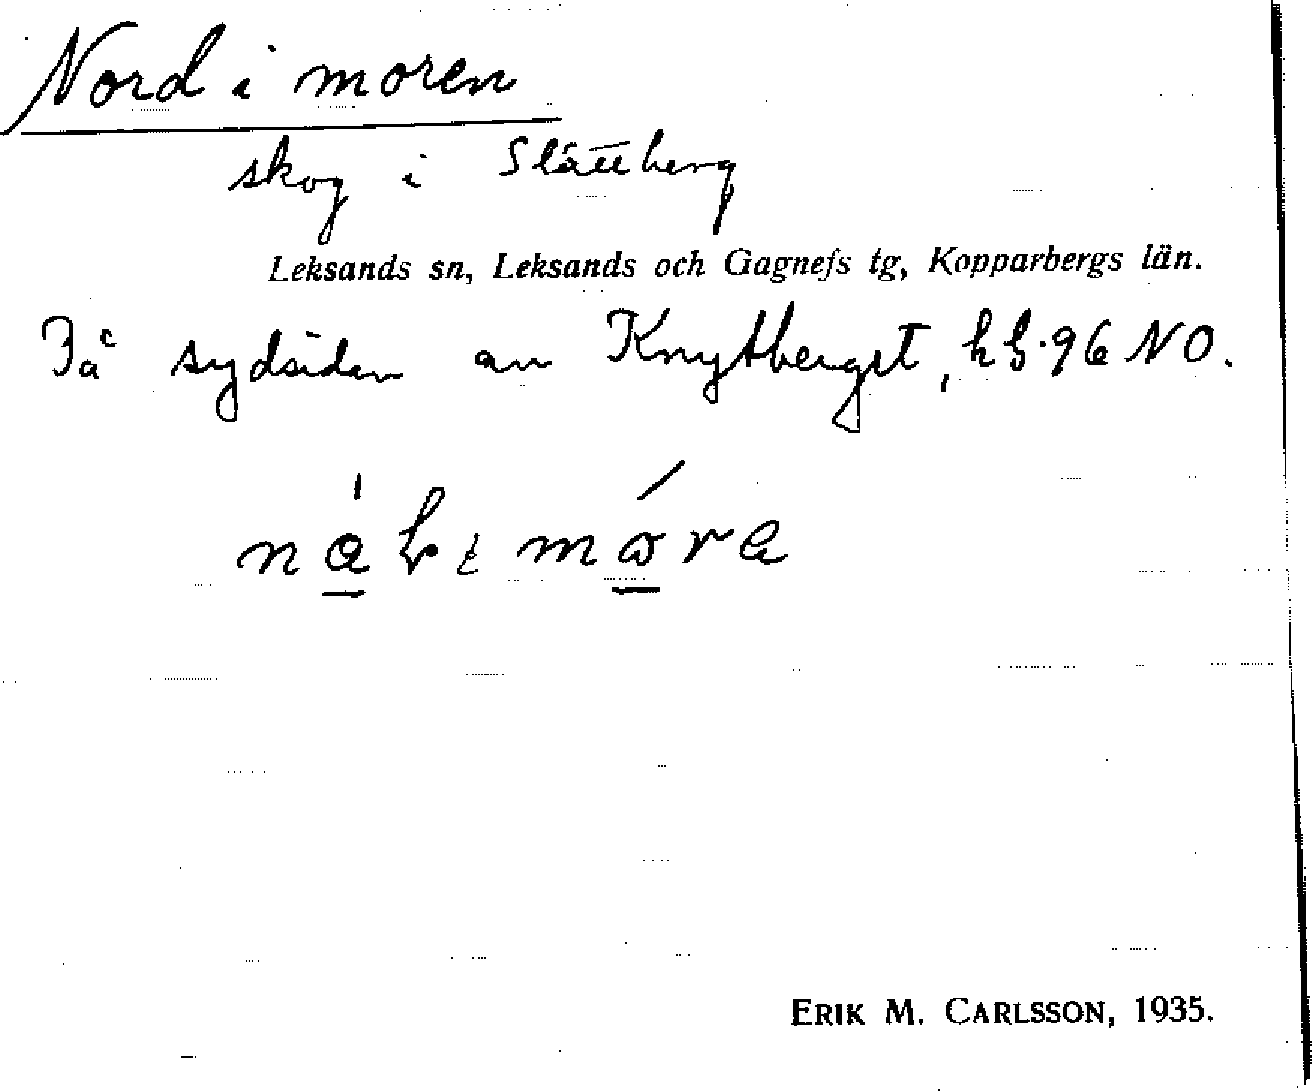 Nord i moren
skog i Slättberg
Leksands sn, Leksands och Gagnefs tg, Kopparbergs län.
På sydsidan av Knytberget, hb. 96 NO.
ERIK M. CARLSSON, 1935.